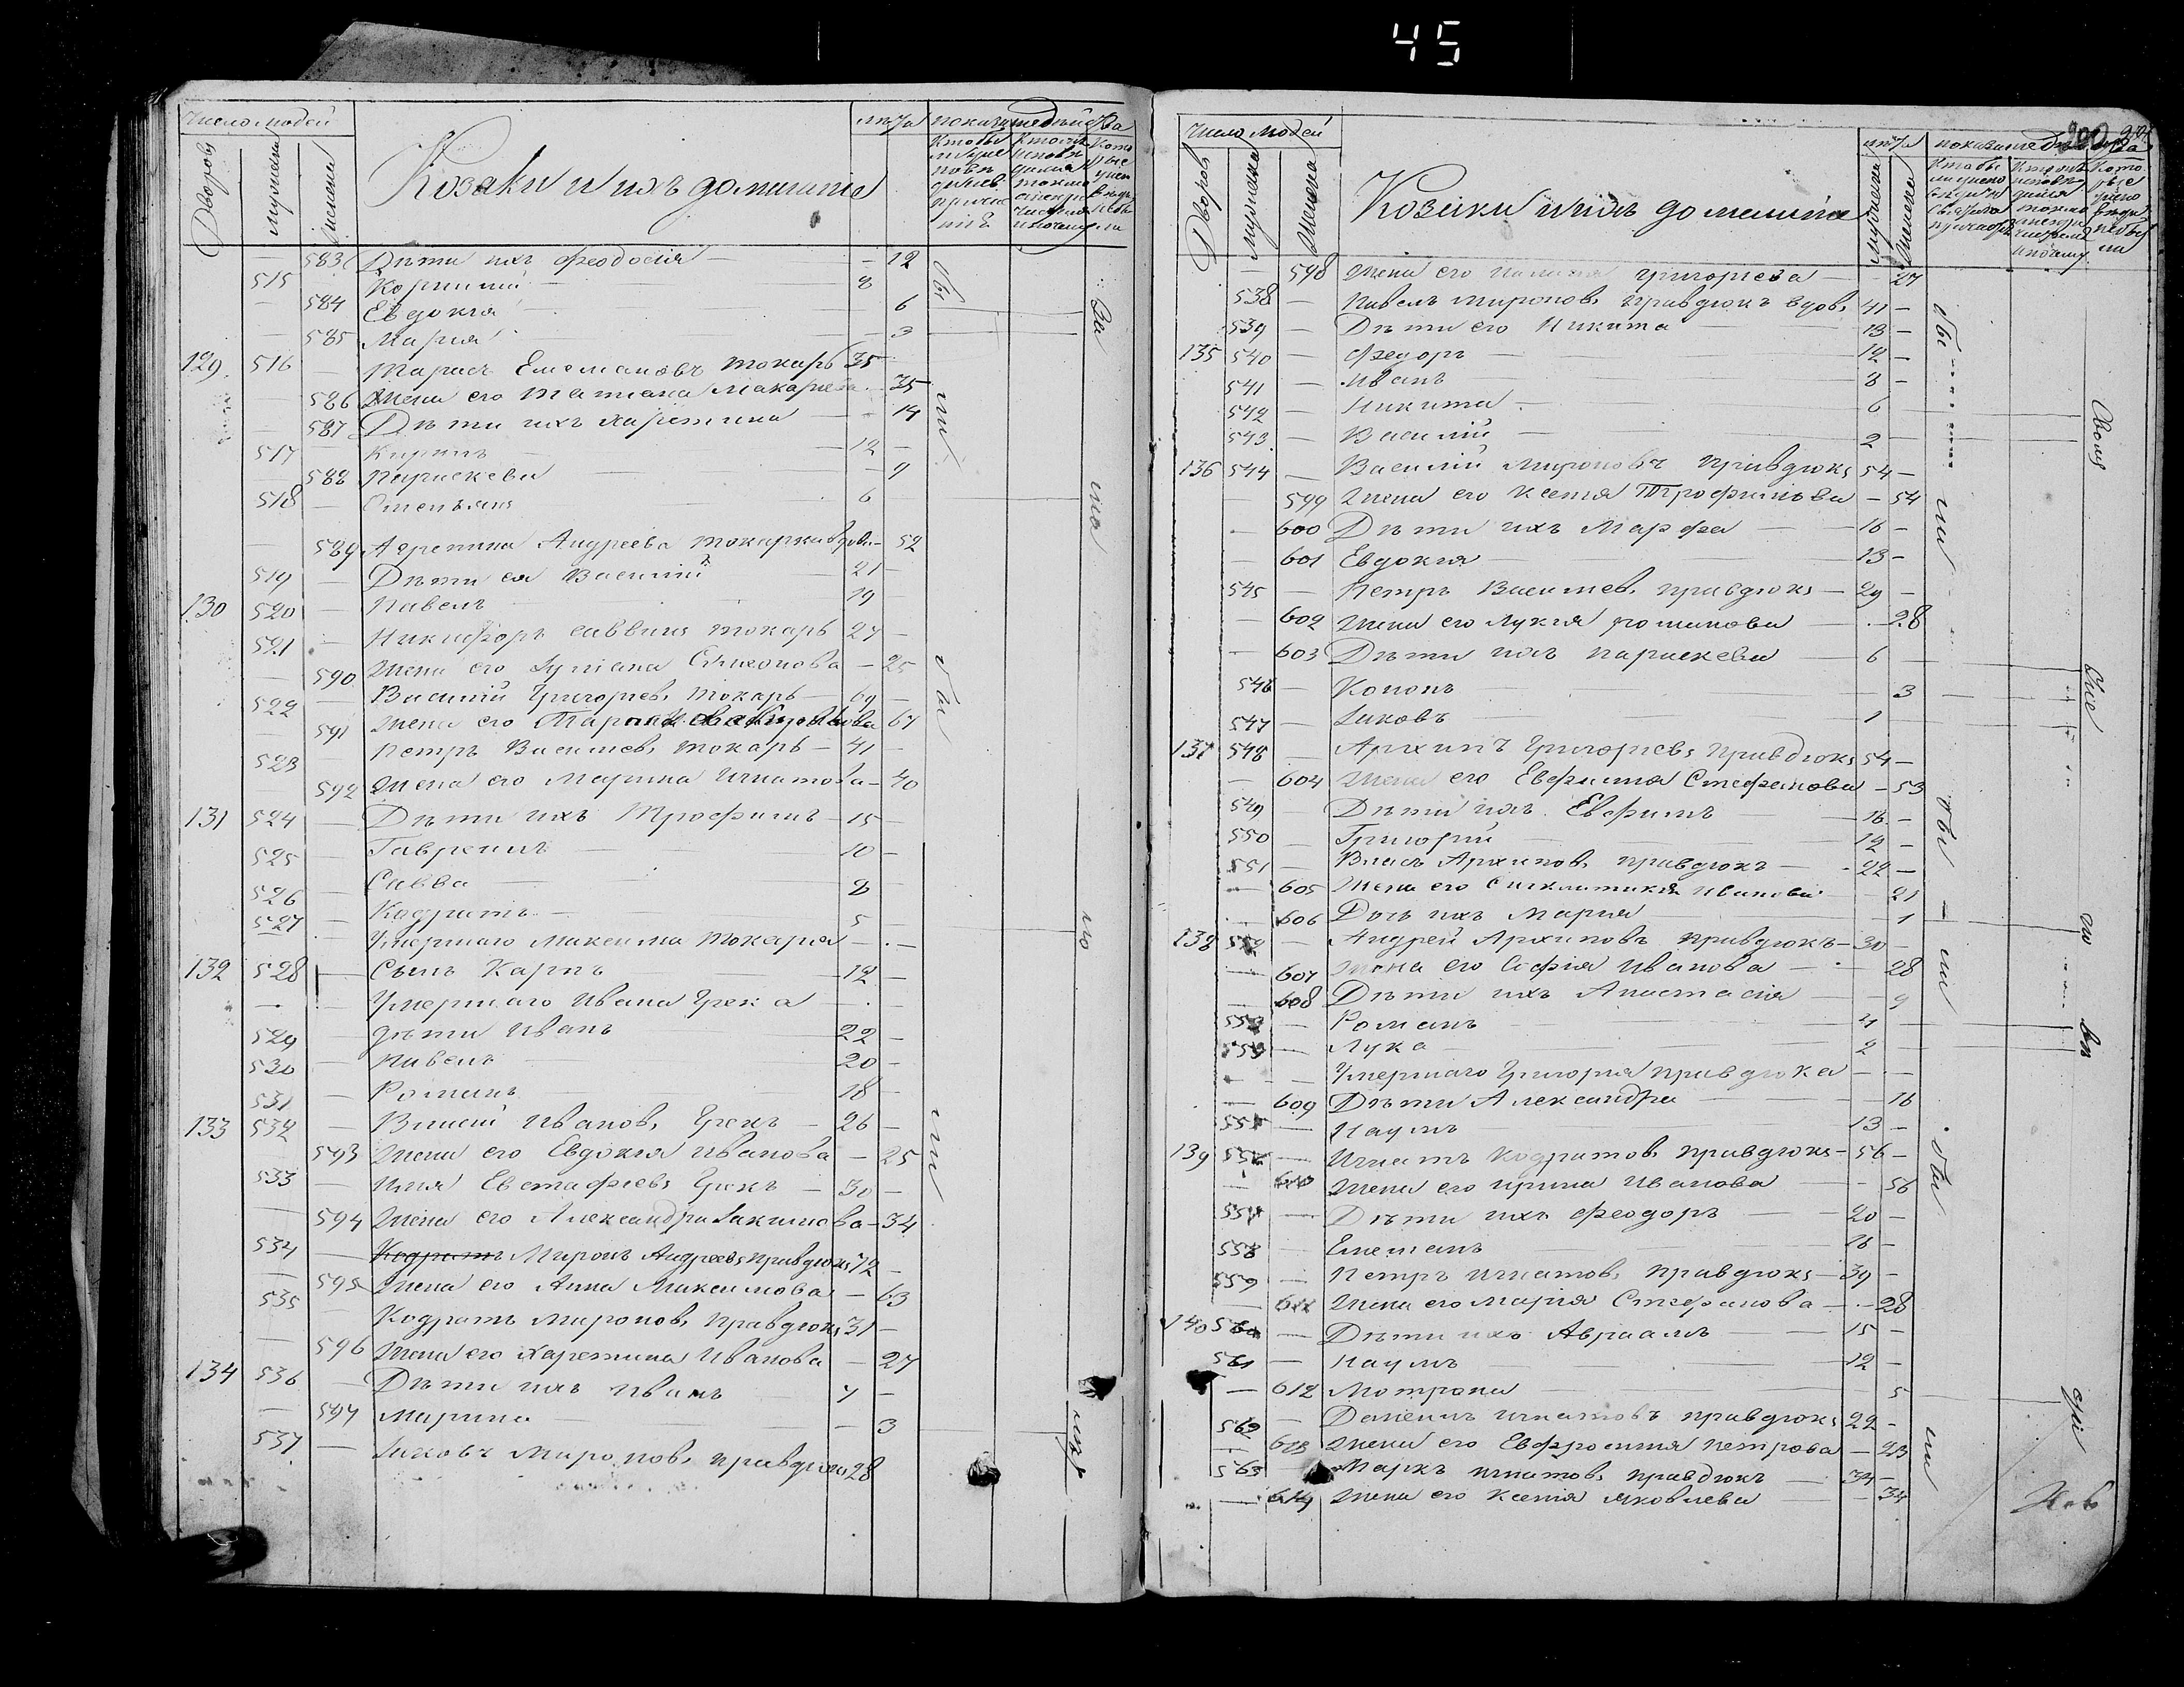 45
Число людей
лѣта
Дворовъ
мужеска
женска
Козаки и ихъ домашние
583 Дѣти ихъ Феодосия — 12
515 Корнилий 8
584 Евдокия 6
585 Мария 3
129 516 Тарасъ Емельяновъ Токарь 35
586 Жена его Татиана Макариева 35
587 Дѣти ихъ Харитина 14
517 Кирилъ 12
588 Параскева 9
518 Степанъ 6
589 Агрепина Андреева Токарка вдова 52
519 Дѣти ея Василий 21
130 520 Павелъ 19
521 Никифоръ Саввинъ Токарь 27
590 Жена его Иулиана Симеонова 25
522 Василий Григориевъ Токарь 69
591 Жена его 67
523 Петръ Василиевъ Токарь 41
592 Жена его Марина Игнатова 40
131 524 Дѣти ихъ Трофимъ 15
525 Гавреилъ 10
526 Савва 8
527 Кодратъ 5
Умершаго Максима Токаря
132 528 Сынъ Карпъ 12
Умершаго Ивана Грека
529 дѣти Иванъ 22
530 Павелъ 20
531 Романъ 18
133 532 Власий Ивановъ Грекъ 26
593 Жена его Евдокия Иванова 25
533 Илия Евстафиевъ Грекъ 30
594 Жена его Александра Иакимова 34
534 Кодратъ Миронъ Андреевъ Правдюкъ 72
595 Жена его Анна Максимова 63
535 Кодратъ Мироновъ Правдюкъ 31
596 Жена его Харетина Иванова 27
134 536 Дѣти ихъ Иванъ 7
597 Марина 3
537 Иаковъ Мироновъ Правдюкъ 28
Число людей
лѣта
Дворовъ
мужеска
женска
Козаки и ихъ домашние
мужеска
женска
598 Жена его Григориева 27
538 Павелъ Мироновъ Правдюкъ вдовъ 41
539 Дѣти его Никита 13
135 540 Федоръ 12
541 Иванъ 8
542 Никита 6
543 Василий 2
136 544 Василий Мироновъ Правдюкъ 54
599 Жена его Ксения Трофимова 54
600 Дѣти ихъ Марфа 16
601 Евдокия 13
545 Петръ Василиевъ Правдюкъ 29
602 Жена его Лукия Романова 28
603 Дѣти ихъ Параскева 6
546 Кононъ 3
547 Иаковъ 1
137 548 Архипъ Григориевъ Правдюкъ 54
604 Жена его Евфимия Стефанова 53
549 Дѣти ихъ Евфимъ 16
550 Григорий 12
551 Власъ Архиповъ Правдюкъ 22
605 Жена его Синклитикия Иванова 21
606 Дочь ихъ Мария 1
138 552 Андрей Архиповъ Правдюкъ 30
607 Жена его София Иванова 28
608 Дѣти ихъ Анастасия 9
553 Романъ 4
Лука 2
Умершаго Григория Правдюка
609 Дѣти Александра 16
555 Наумъ 13
139 Игнатъ Кодратовъ Правдюкъ 56
610 Жена его Ирина Иванова 56
557 Дѣти ихъ Феодоръ 20
558 Емелианъ 16
559 Петръ Игнатовъ Правдюкъ 39
611 Жена его Мария Стефанова 28
140 560 Дѣти ихъ Авраамъ 15
561 Наумъ 12
612 Мотрона 5
562 Даниилъ Игнатовъ Правдюкъ 22
613 Жена его Евфросиния Петрова 23
563 Маркъ Игнатовъ Правдюкъ 34
614 Жена его Ксения Яковлева 34